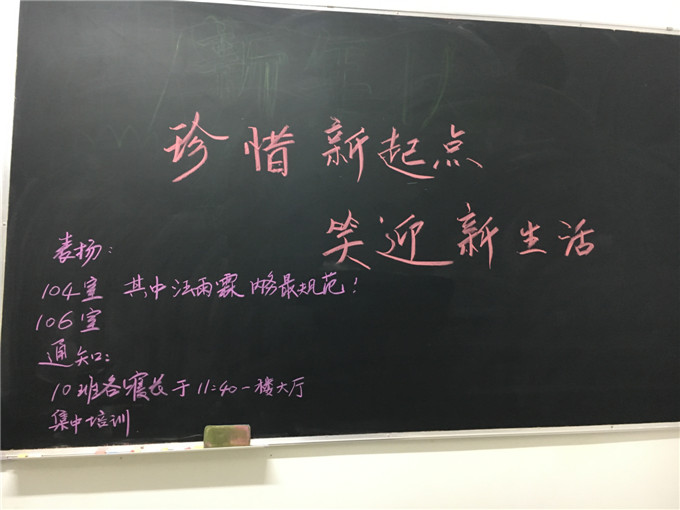 珍惜新起点
笑迎新生活
表扬：
104室 其中汪雨霖内务最规范！
106室
通知：
10班各寝长于11:40一楼大厅
集中培训